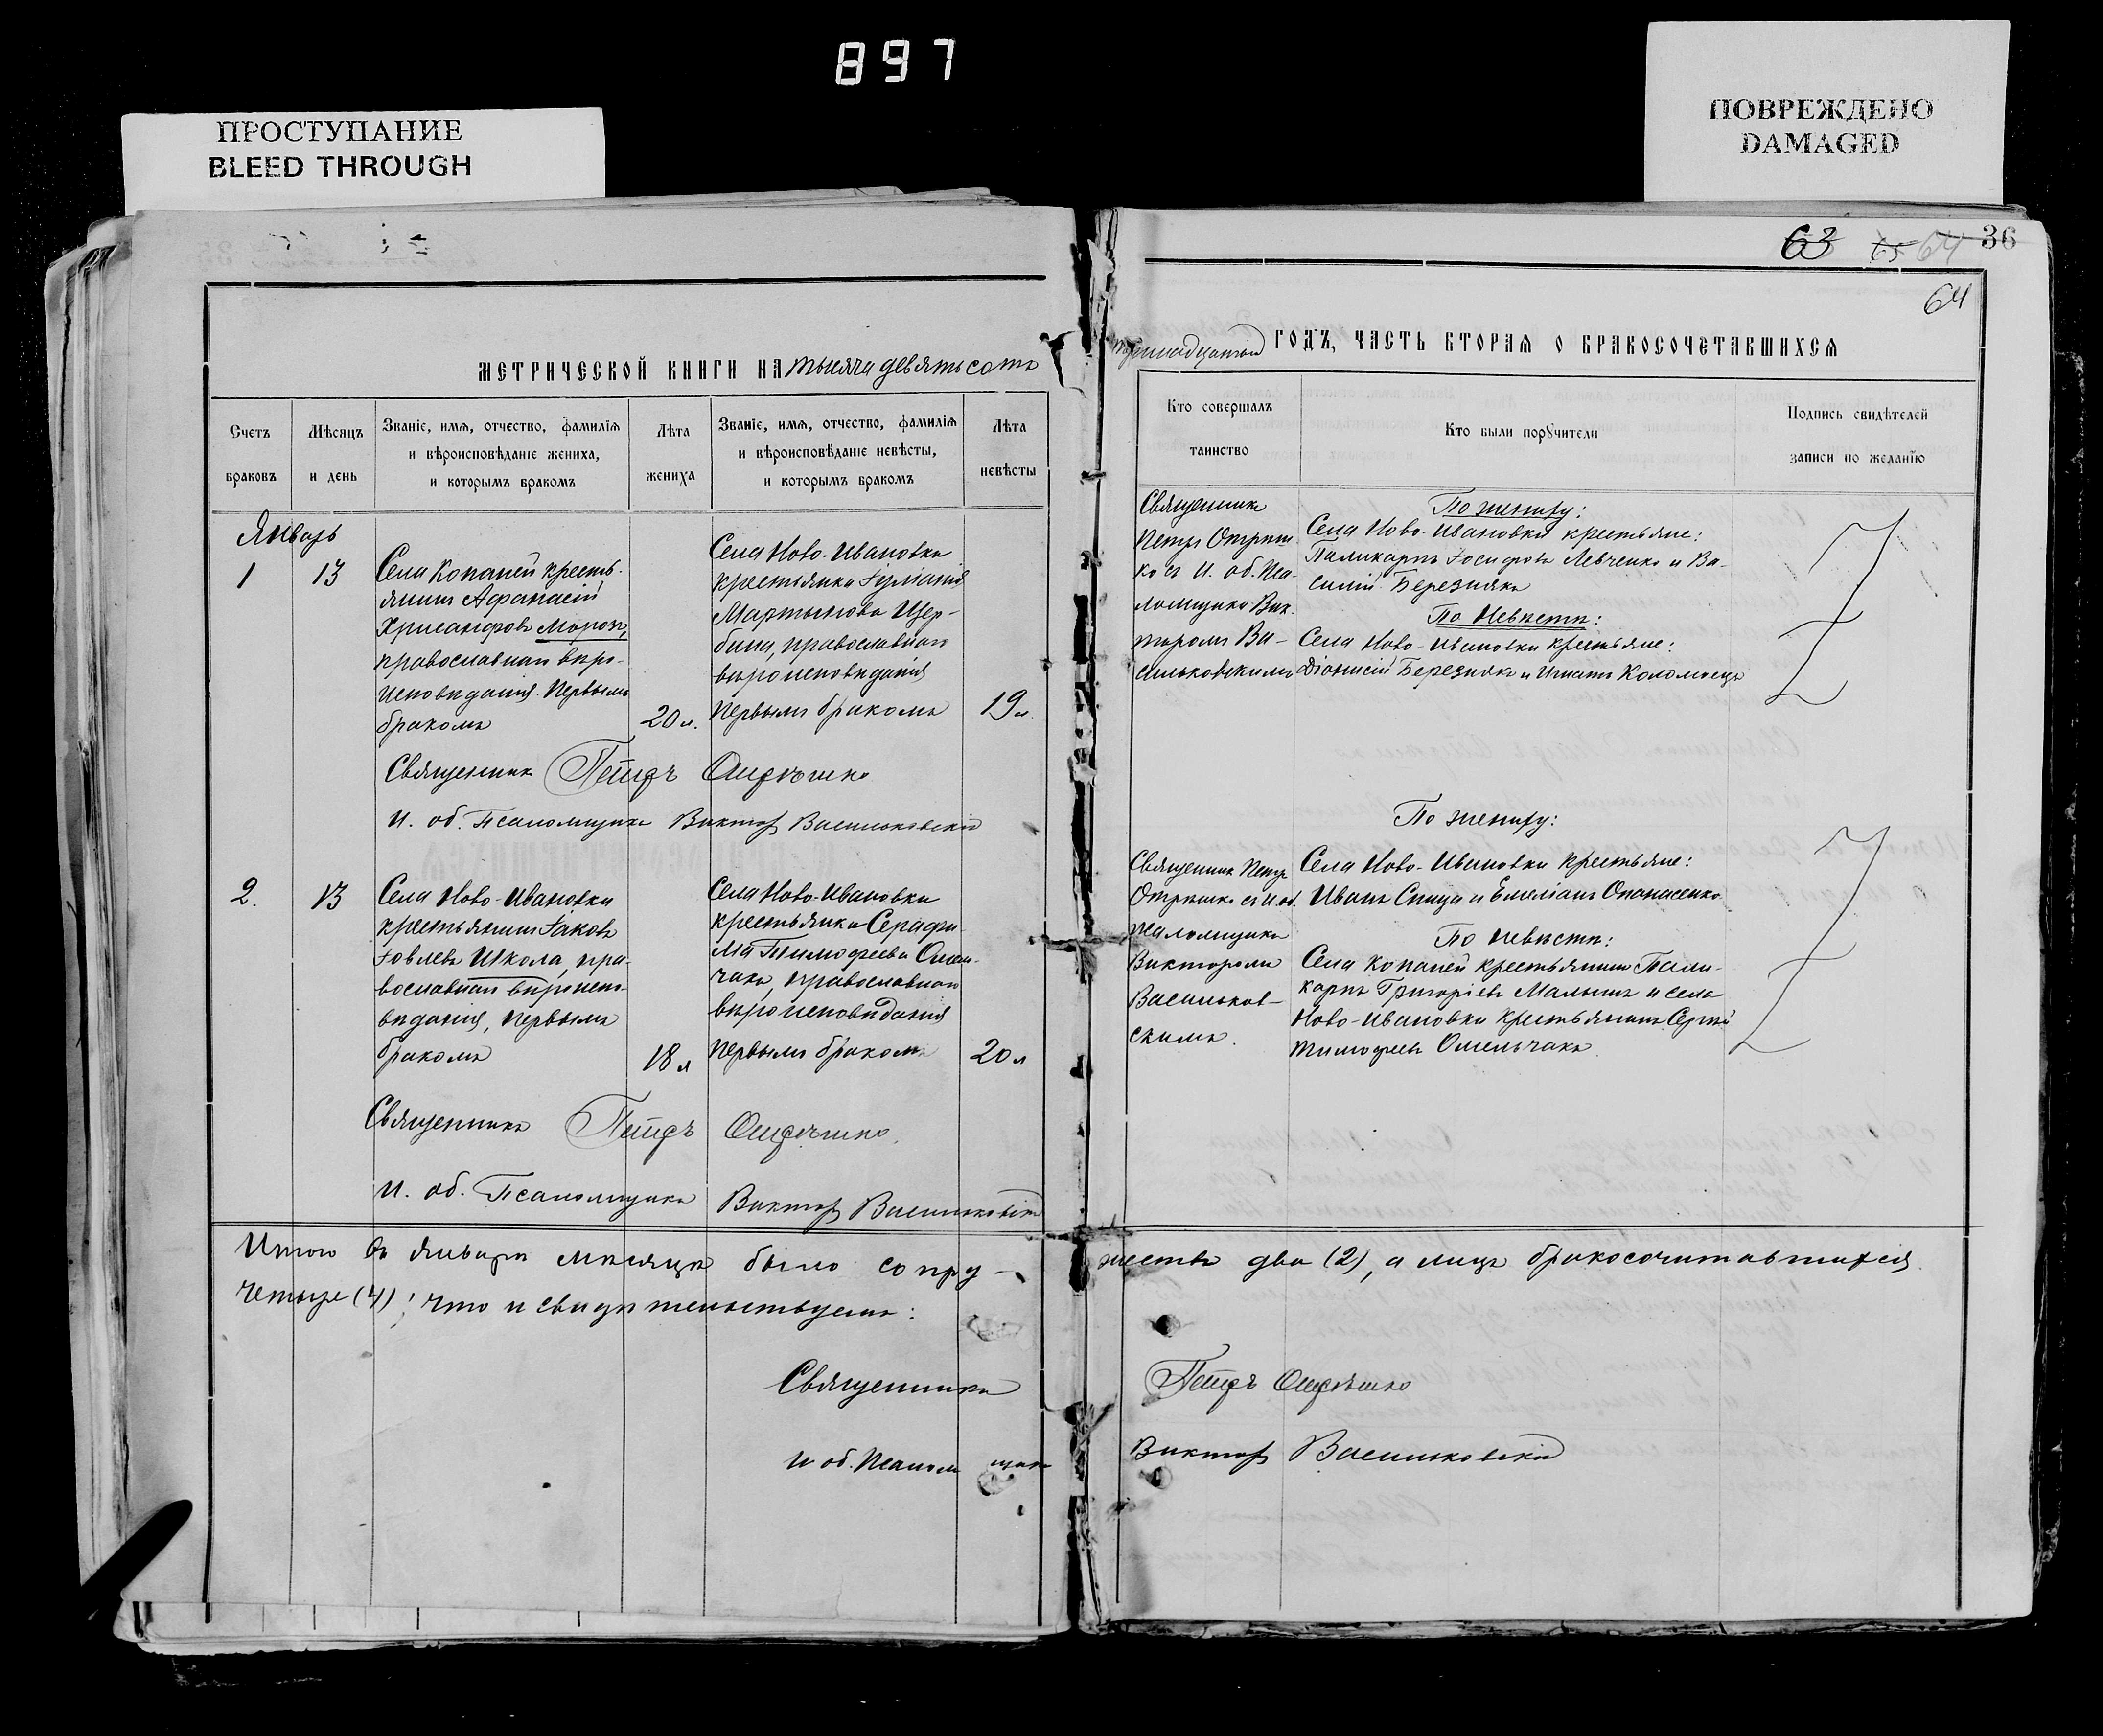 897
ПРОСТУПАНИЕ
BLEED THROUGH
ПОВРЕЖДЕНО
DAMAGED
63 65 64 36
64
МЕТРИЧЕСКОЙ КНИГИ НА тысяча девятьсотъ
ГОДЪ, ЧАСТЬ ВТОРАЯ О БРАКОСОЧЕТАВШИХСЯ
Счетъ
браковъ
Мѣсяцъ
и день
Званіе, имя, отчество, фамилія
и вѣроисповѣданіе жениха,
и которымъ бракомъ
Лѣта
жениха
Званіе, имя, отчество, фамилія
и вѣроисповѣданіе невѣсты,
и которымъ бракомъ
Лѣта
невѣсты
Кто совершалъ
таинство
Кто были поручители
Подпись свидѣтелей
записи по желанію
Январь
1
13
Села Копаней кресть-
янинъ Афанасій
Хрисанфовъ Морозъ,
православнаго вѣро-
исповѣданія. Первымъ
бракомъ
20 л.
Села Ново-Ивановки
крестьянка
Мартынова Щер-
бина, православнаго
вѣроисповѣданія
Первымъ бракомъ
19 л.
Священникъ
Петръ Отрѣш-
ко съ И. об. Пса-
ломщика Вик-
торомъ Ва-
сильковскимъ
По жениху:
Села Ново-Ивановки крестьяне:
Поликарпъ Іосифовъ Левченко и Ва-
силій Березнякъ
По Невѣстѣ:
Села Ново-Ивановки крестьяне:
Діонисій Березнякъ и Игнатъ Коломіецъ
Священникъ Петръ Отрѣшко
И. об. Псаломщика Викторъ Васильковскій
2.
13
Села Ново-Ивановки
крестьянинъ Іаковъ
Іовлевъ Школа, пра-
вославнаго вѣроиспо-
вѣданія, Первымъ
бракомъ
18 л
Села Ново-Ивановки
крестьянка Серафи-
ма Тимофеева Омель-
чакъ, православнаго
вѣроисповѣданія
Первымъ бракомъ
20 л
Священникъ Петръ
Отрѣшко съ И. об.
Псаломщика
Викторомъ
Васильков-
скимъ.
По жениху:
Села Ново-Ивановки крестьяне:
Иванъ Спица и Емеліанъ Опанасенко
По Невѣстѣ:
Села Копаней крестьянинъ Поли-
карпъ Григоріевъ Малышъ и села
Ново-Ивановки крестьянинъ Сергѣй
Тимофеевъ Омельчакъ.
Священникъ Петръ Отрѣшко
И. об. Псаломщика Викторъ Васильковскій
Итого въ январѣ мѣсяцѣ было супру-
жествъ два (2), а лицъ бракосочитавшихся
четыре (4); что и свидѣтельствуемъ:
Священникъ Петръ Отрѣшко
И об. Псаломщика Викторъ Васильковскій